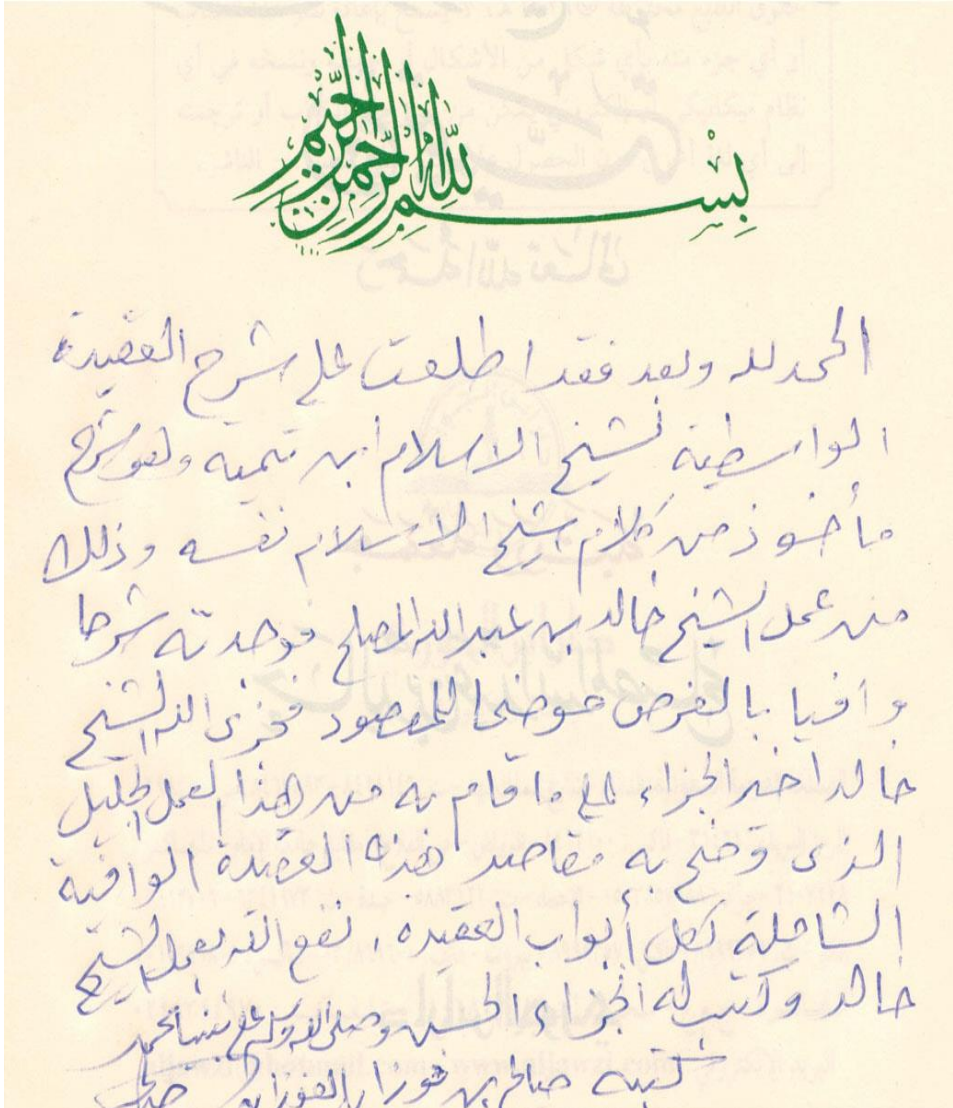 بِسْمِ اللهِ الرَّحْمٰنِ الرَّحِيْمِ
الحمد لله وبعد فقد اطلعت على شرح العقيدة
الواسطية لشيخ الاسلام ابن تيمية وهو شرح
مأخوذ من كلام شيخ الاسلام نفسه وذلك
من عمل الشيخ خالد بن عبدالله المصلح فوجدته شرحا
وافيا بالغرض موضحا للمقصود فجزى الله الشيخ
خالدا خير الجزاء على ما قام به من هذا العمل الجليل
الذى وضح به مقاصد هذه العقيدة الوافية
الشاملة لكل أبواب العقيدة، نفع الله بعمل الشيخ
خالد وكتب له الجزاء الحسن وصلى الله وسلم على نبينا محمد
كتبه صالح بن فوزان الفوزان